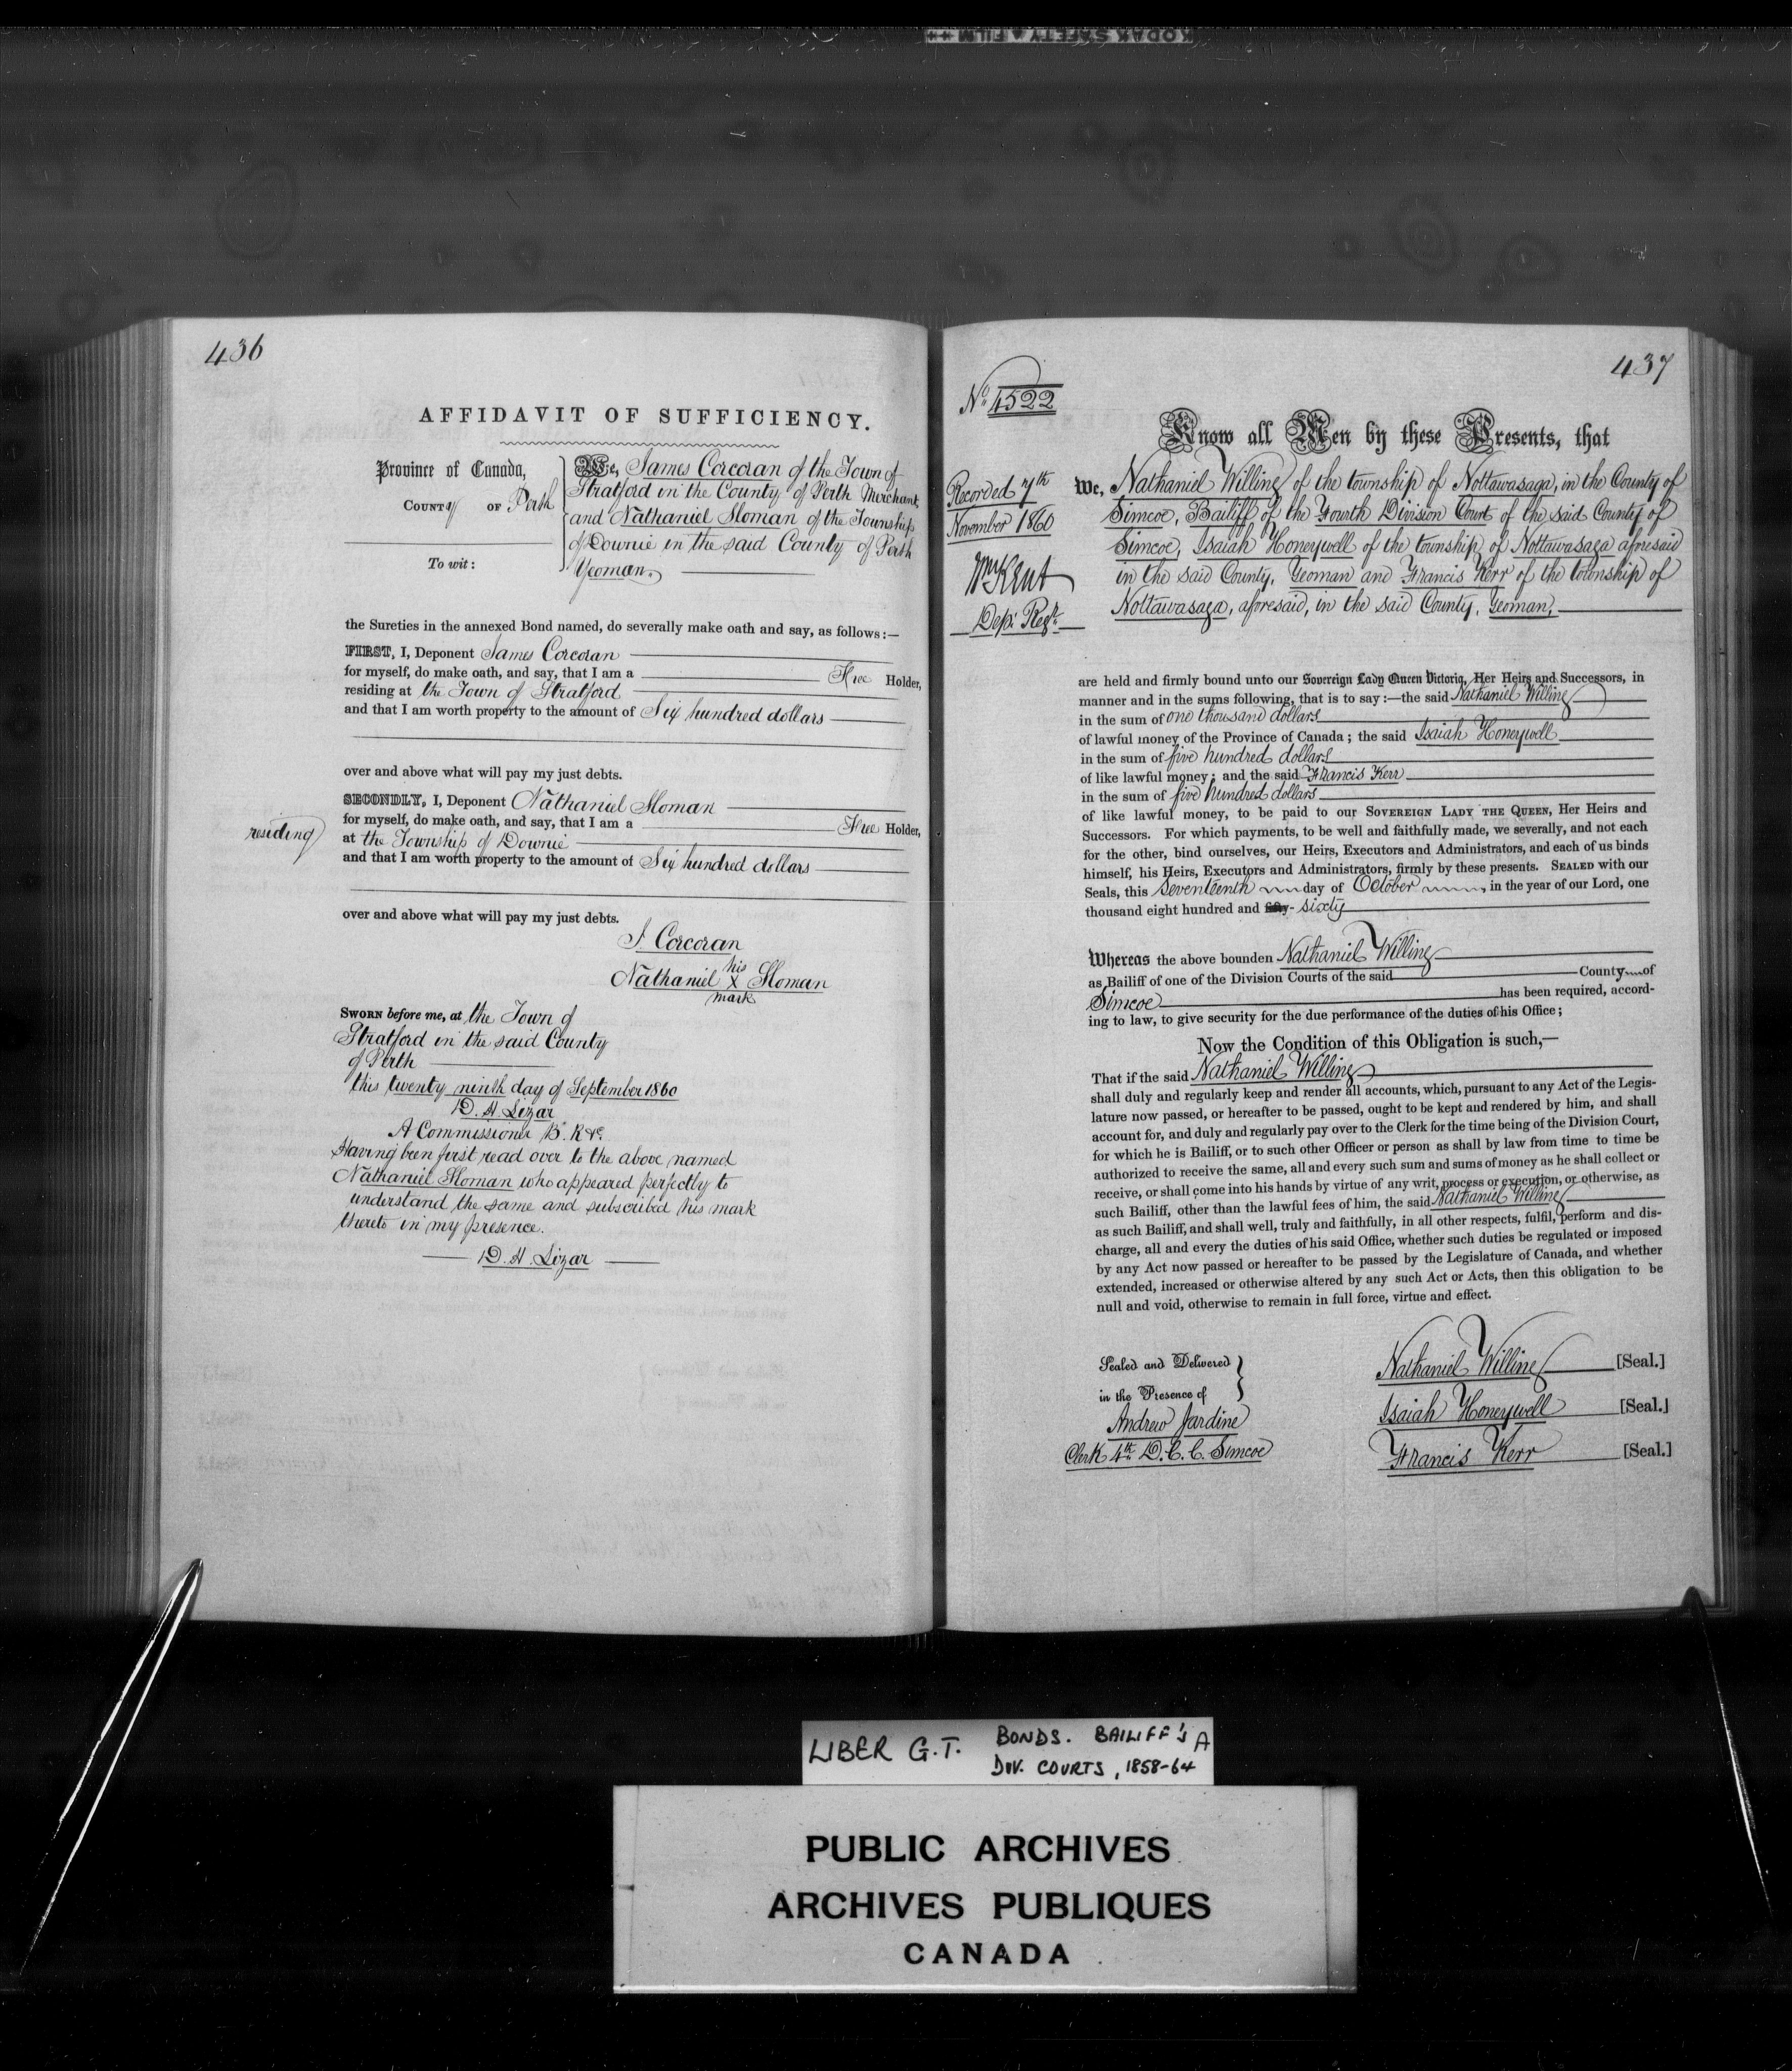 KODAK SAFETY FILM
436
AFFIDAVIT OF SUFFICIENCY.
Province of Canada,
COUNTY OF Perth
To wit:
We, James Corcoran of the Town of
Stratford in the County of Perth Merchant,
and Nathaniel Sloman of the Township
of Downie in the said County of Perth
Yeoman.
the Sureties in the annexed Bond named, do severally make oath and say, as follows:—
FIRST, I, Deponent James Corcoran
for myself, do make oath, and say, that I am a Free Holder,
residing at the Town of Stratford
and that I am worth property to the amount of Six hundred dollars
over and above what will pay my just debts.
SECONDLY, I, Deponent Nathaniel Sloman
for myself, do make oath, and say, that I am a Free Holder,
residing at the Township of Downie
and that I am worth property to the amount of Six hundred dollars
over and above what will pay my just debts.
J. Corcoran
his
Nathaniel X Sloman
mark
SWORN before me, at the Town of
Stratford in the said County
of Perth
this twenty ninth day of September 1860
D. H. Lizar
A Commissioner B. R &c.
Having been first read over to the above named
Nathaniel Sloman who appeared perfectly to
understand the same and subscribed his mark
thereto in my presence.
D. H. Lizar
437
No. 4522
Recorded 7th
November 1860
Wm Kent
Dep: Regr.
Know all Men by these Presents, that
We, Nathaniel Willing of the township of Nottawasaga, in the County of
Simcoe, Bailiff of the Fourth Division Court of the said County of
Simcoe, Isaiah Honeywell of the township of Nottawasaga aforesaid
in the said County, Yeoman and Francis Kerr of the township of
Nottawasaga, aforesaid, in the said County, Yeoman,
are held and firmly bound unto our Sovereign Lady Queen Victoria, Her Heirs and Successors, in
manner and in the sums following, that is to say :—the said Nathaniel Willing
in the sum of one thousand dollars
of lawful money of the Province of Canada; the said Isaiah Honeywell
in the sum of five hundred dollars
of like lawful money; and the said Francis Kerr
in the sum of five hundred dollars
of like lawful money, to be paid to our SOVEREIGN LADY THE QUEEN, Her Heirs and
Successors. For which payments, to be well and faithfully made, we severally, and not each
for the other, bind ourselves, our Heirs, Executors and Administrators, and each of us binds
himself, his Heirs, Executors and Administrators, firmly by these presents. SEALED with our
Seals, this Seventeenth day of October, in the year of our Lord, one
thousand eight hundred and fifty- sixty
Whereas the above bounden Nathaniel Willing
as Bailiff of one of the Division Courts of the said County of
Simcoe has been required, accord-
ing to law, to give security for the due performance of the duties of his Office;
Now the Condition of this Obligation is such,—
That if the said Nathaniel Willing
shall duly and regularly keep and render all accounts, which, pursuant to any Act of the Legis-
lature now passed, or hereafter to be passed, ought to be kept and rendered by him, and shall
account for, and duly and regularly pay over to the Clerk for the time being of the Division Court,
for which he is Bailiff, or to such other Officer or person as shall by law from time to time be
authorized to receive the same, all and every such sum and sums of money as he shall collect or
receive, or shall come into his hands by virtue of any writ, process or execution, or otherwise, as
such Bailiff, other than the lawful fees of him, the said Nathaniel Willing
as such Bailiff, and shall well, truly and faithfully, in all other respects, fulfil, perform and dis-
charge, all and every the duties of his said Office, whether such duties be regulated or imposed
by any Act now passed or hereafter to be passed by the Legislature of Canada, and whether
extended, increased or otherwise altered by any such Act or Acts, then this obligation to be
null and void, otherwise to remain in full force, virtue and effect.
Sealed and Delivered
in the Presence of
Andrew Jardine
Clerk 4th D. C. C. Simcoe
Nathaniel Willing [Seal.]
Isaiah Honeywell [Seal.]
Francis Kerr [Seal.]
LIBER G.T. BONDS. BAILIFF'S A
DIV. COURTS, 1858-64
PUBLIC ARCHIVES
ARCHIVES PUBLIQUES
CANADA